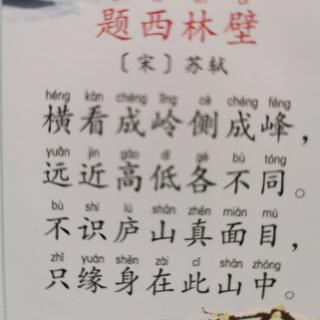 题西林壁
〔宋〕苏轼
héng kàn chéng lǐng cè chéng fēng
横看成岭侧成峰，
yuǎn jìn gāo dī gè bù tóng
远近高低各不同。
bù shí lú shān zhēn miàn mù
不识庐山真面目，
zhǐ yuán shēn zài cǐ shān zhōng
只缘身在此山中。